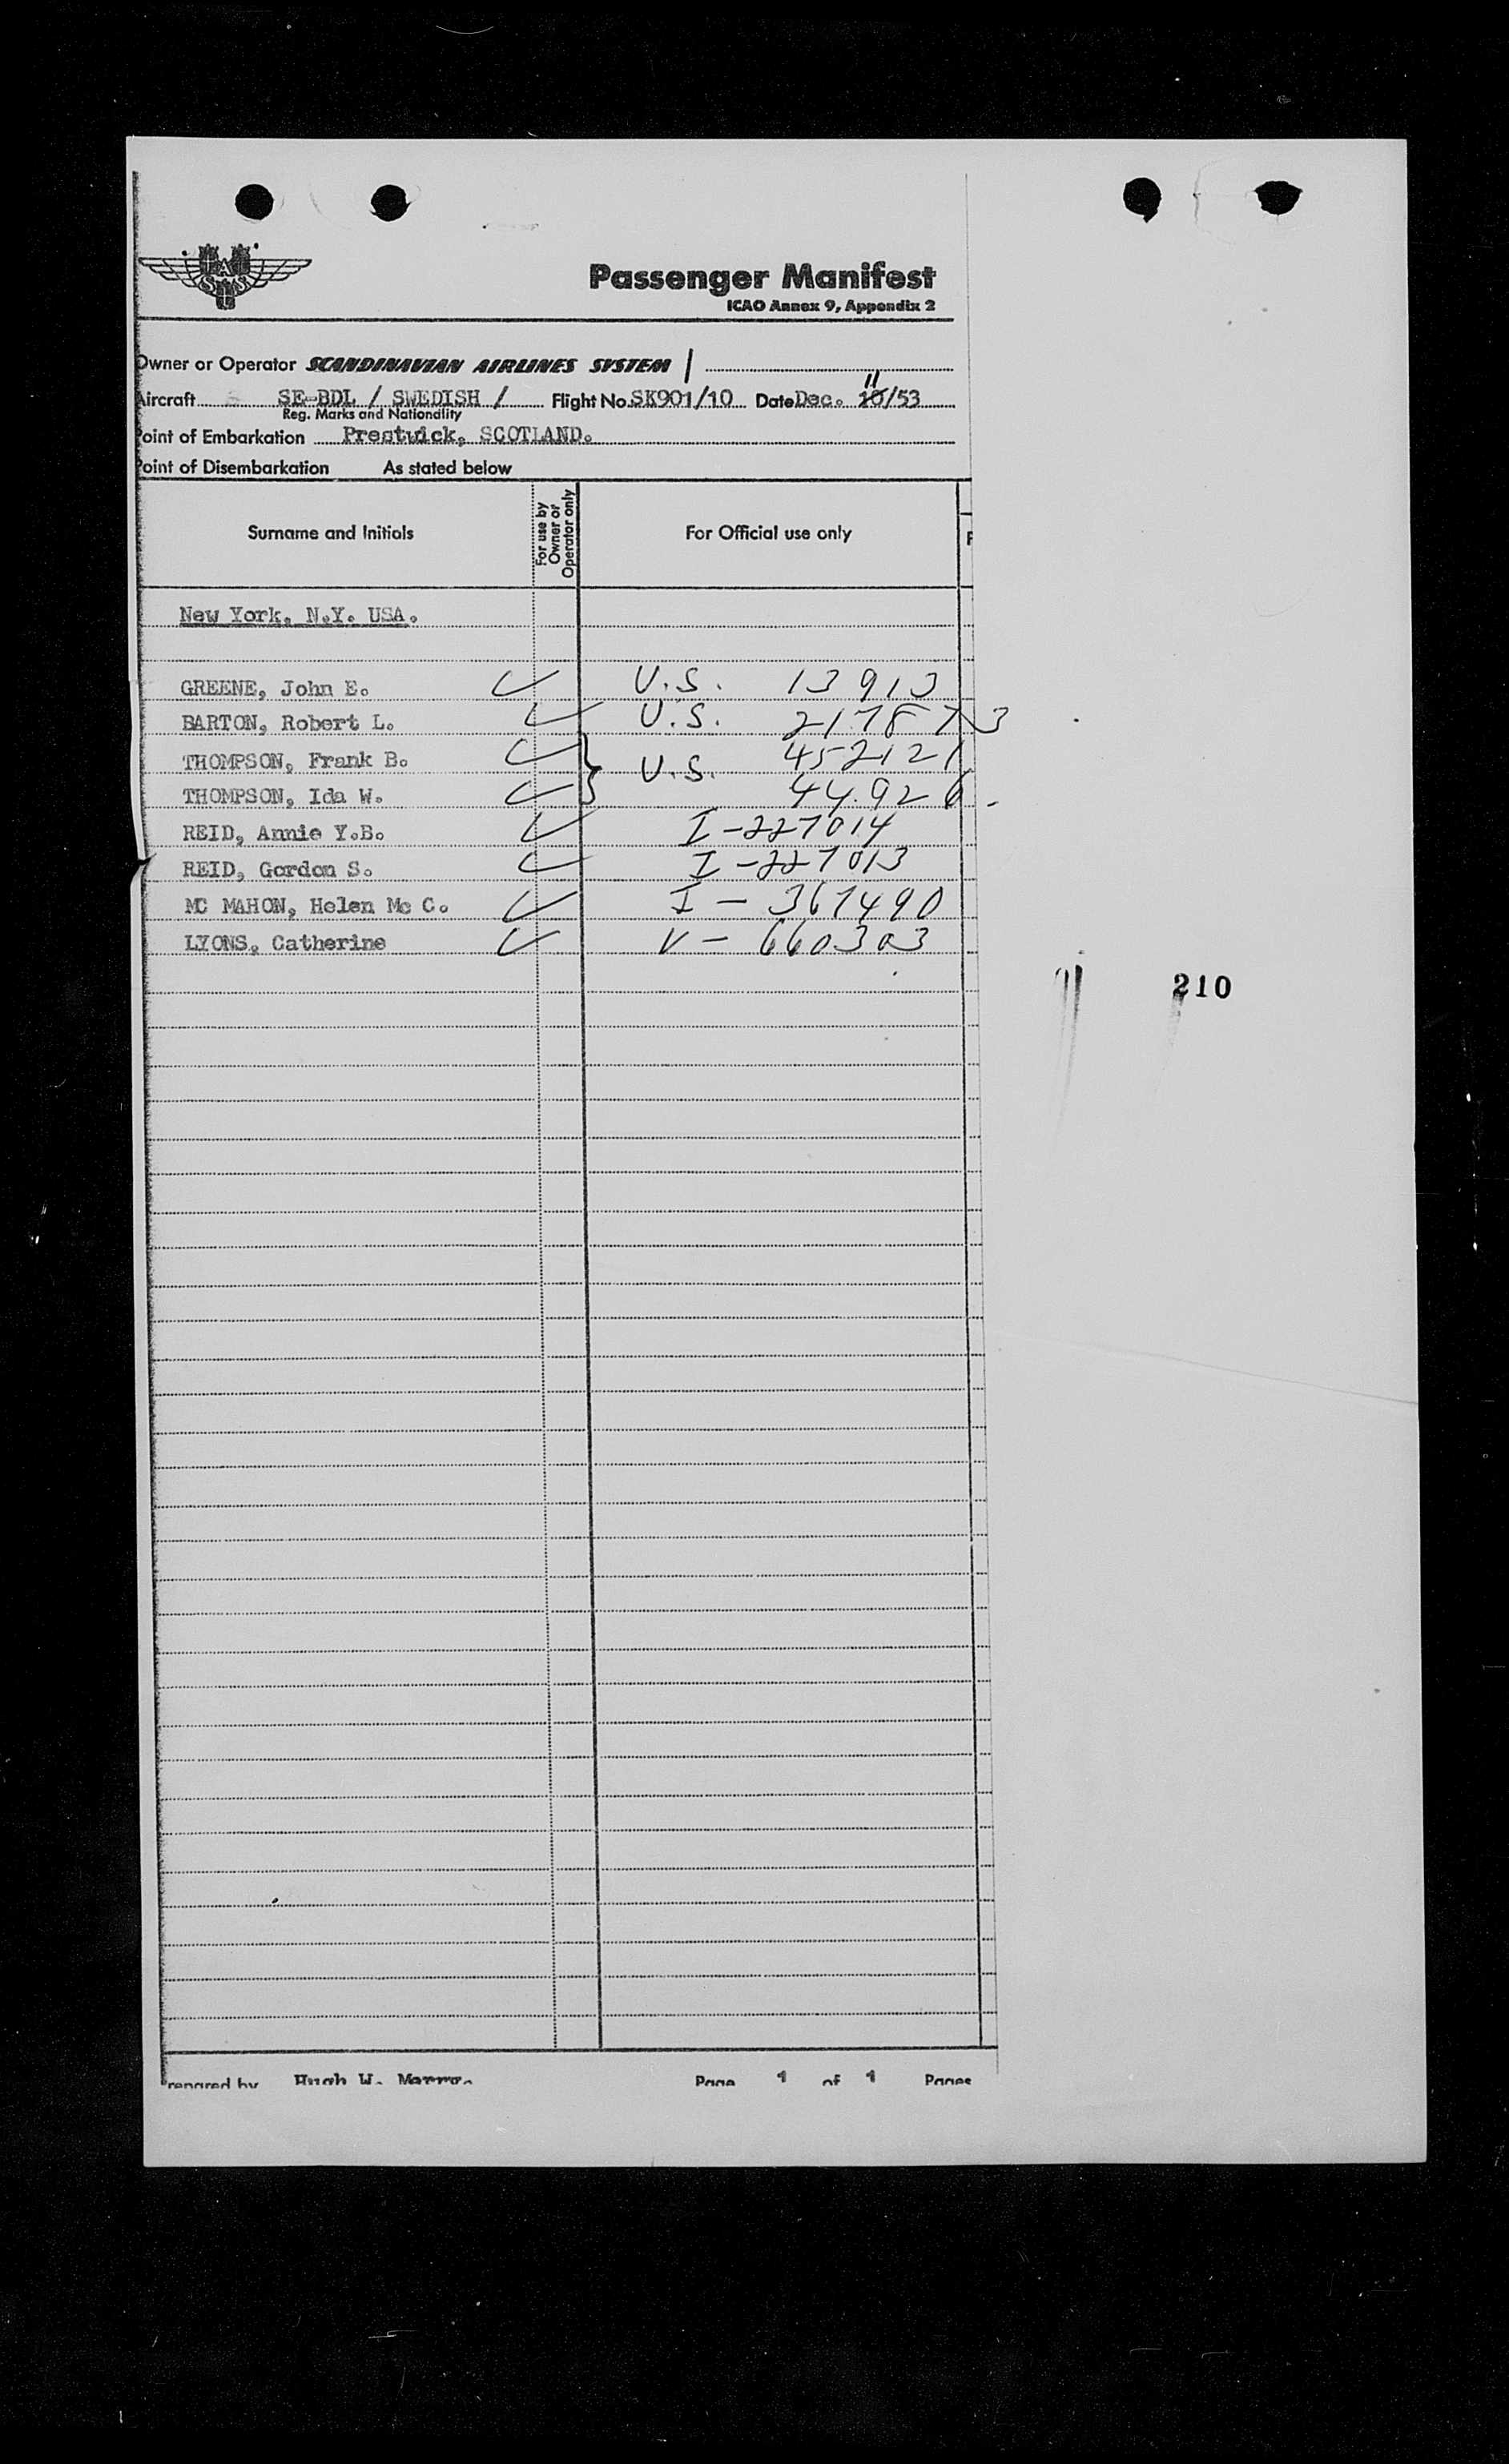 Passenger Manifest
ICAO Annex 9, Appendix 2
Owner or Operator SCANDINAVIAN AIRLINES SYSTEM /
11
Aircraft SE-BDL / SWEDISH / Flight No. SK901/10 Date Dec. 10/53
Reg. Marks and Nationality
Point of Embarkation Prestwick, SCOTLAND.
Point of Disembarkation As stated below
Surname and Initials For use by Owner or Operator only For Official use only
New York, N.Y. USA.
GREENE, John E. ✓ U.S. 13913
BARTON, Robert L. ✓ U.S. 217873
THOMPSON, Frank B. ✓ } U.S. 452121
THOMPSON, Ida W. ✓ 44926
REID, Annie Y.B. ✓ I-227014
REID, Gordon S. ✓ I-227013
MC MAHON, Helen Mc C. ✓ I-367490
LYONS, Catherine ✓ V-660303
210
Prepared by Hugh W. Merry. Page 1 of 1 Pages